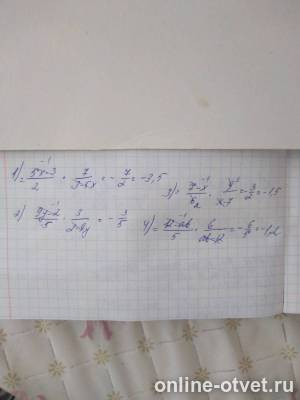 1) = 5x-3/2 · 7/3-5x = -7/2 = -3,5
2) 9y-2/5 · 3/2-9y = -3/5
3) = 7-x/6₂ · 9³/x-7 = -3/2 = -1,5
4) = /5 · 6/ = -6/5 = -1,2
online-otvet.ru